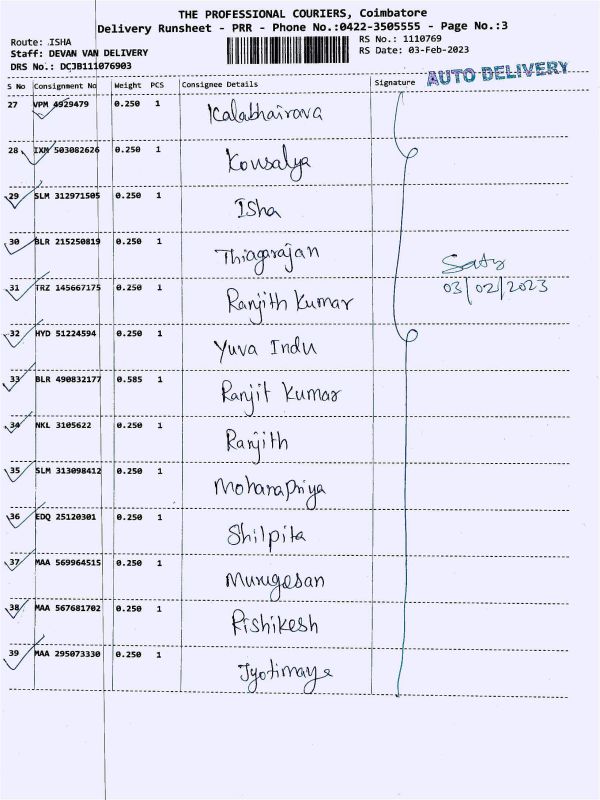 THE PROFESSIONAL COURIERS, Coimbatore
Delivery Runsheet - PRR - Phone No.:0422-3505555 - Page No.:3
Route: ISHA
Staff: DEVAN VAN DELIVERY
DRS No.: DCJB111076903
RS No.: 1110769
RS Date: 03-Feb-2023
AUTO DELIVERY
S No Consignment No Weight PCS Consignee Details Signature
27 VPM 4929479 0.250 1 Kalabhairava
28 IXM 503082626 0.250 1 Kousalya
29 SLM 312971505 0.250 1 Isha
30 BLR 215250819 0.250 1 Thiagarajan
Saty
03/02/2023
31 TRZ 145667175 0.250 1 Ranjith Kumar
32 HYD 51224594 0.250 1 Yuva Indu
33 BLR 490832177 0.585 1 Ranjit Kumar
34 NKL 3105622 0.250 1 Ranjith
35 SLM 313098412 0.250 1 MohanaPriya
36 EDQ 25120301 0.250 1 Shilpita
37 MAA 569964515 0.250 1 Murugesan
38 MAA 567681702 0.250 1 Rishikesh
39 MAA 295073330 0.250 1 Jyotimaye